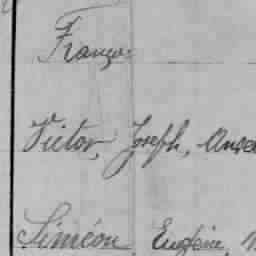 Franço
Victor, Joseph,
Siméon, Eugène,